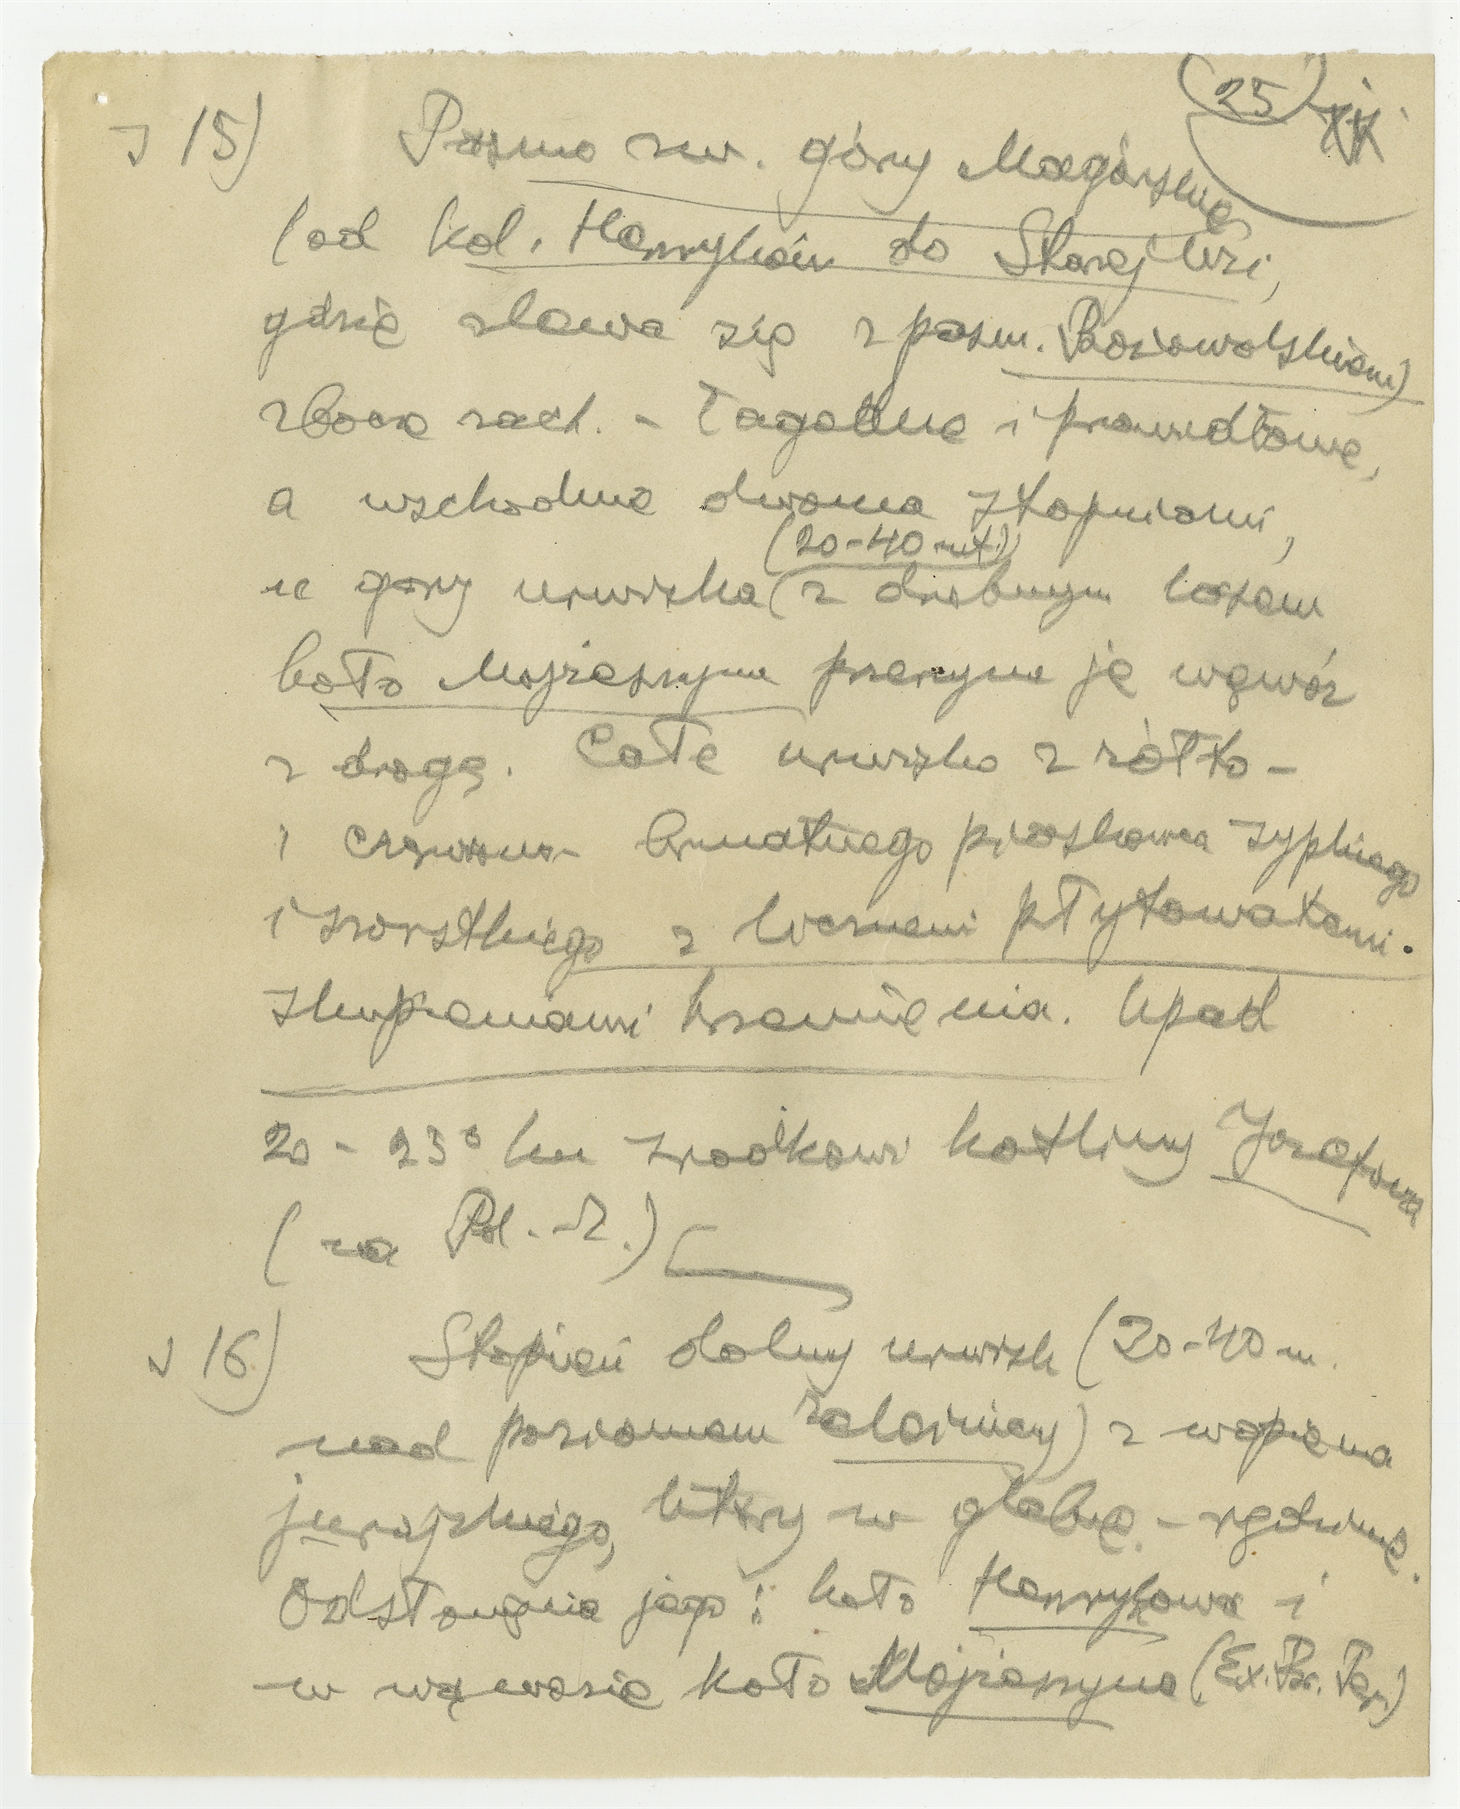 25 XX
15) Pasmo zw. góry Magórskie
(od kol. Henryków do Starej Wsi,
gdzie zlewa się z pasm. Borowolskiem)
zbocze zach. - łagodne i prawidłowe,
a wschodnie dwoma stopniami,
(20-40 mt.)
u góry urwiska z drobnym lasem
koło Mojżeszyna przerywa je wąwóz
z drogą. Całe urwisko z żółto-
i czerwono- brunatnego piaskowca sypkiego
i szorstkiego z licznemi płytowatemi
skupieniami krzemienia. Upad
20 - 23° ku środkowi kotliny Józefowa
(za Pol. -N.)
16) Stopień dolny urwisk (20-40 m.
nad poziomem Zaleśnicy) z wapienia
jurajskiego, który w głębie -
Odsłonięcia jego: koło Henrykowa i
w wąwozie koło Mojżeszyna (Ex. Por. Per.)